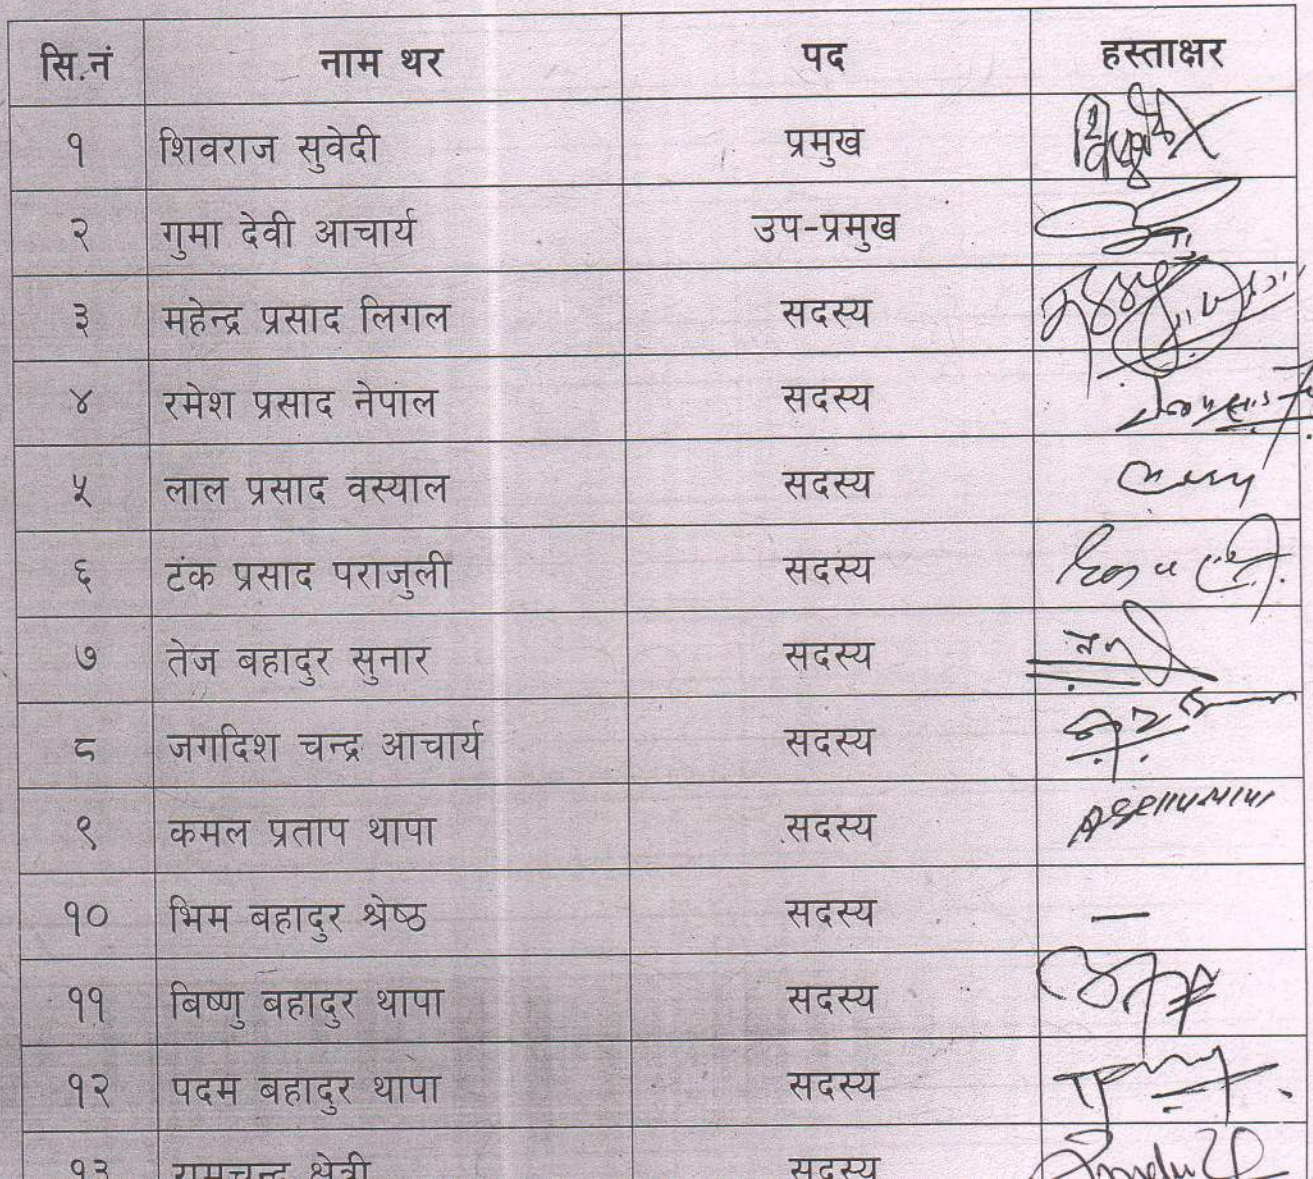 सि.नं नाम थर पद हस्ताक्षर
१ शिवराज सुवेदी प्रमुख
२ गुमा देवी आचार्य उप-प्रमुख
३ महेन्द्र प्रसाद लिगल सदस्य
४ रमेश प्रसाद नेपाल सदस्य
५ लाल प्रसाद वस्याल सदस्य
६ टंक प्रसाद पराजुली सदस्य
७ तेज बहादुर सुनार सदस्य
८ जगदिश चन्द्र आचार्य सदस्य
९ कमल प्रताप थापा सदस्य
१० भिम बहादुर श्रेष्ठ सदस्य —
११ बिष्णु बहादुर थापा सदस्य
१२ पदम बहादुर थापा सदस्य
१३ रामचन्द्र क्षेत्री सदस्य